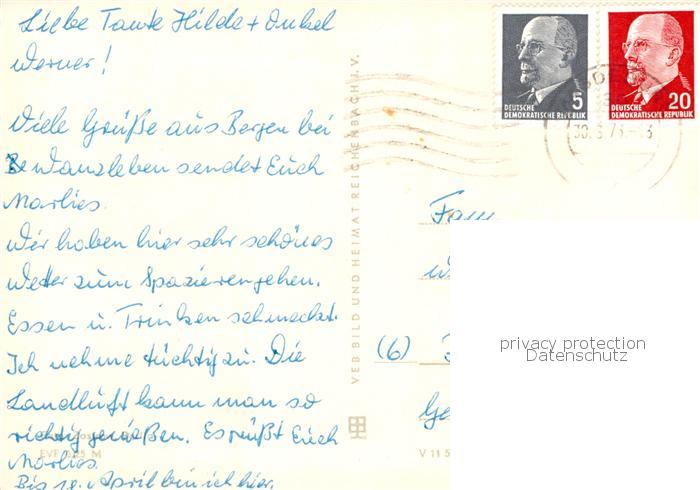 Liebe Tante Hilde + Onkel
Werner!
Viele Grüße aus Bergen bei
Wanzleben sendet Euch
Marlies.
Wir haben hier sehr schönes
Wetter zum Spazierengehen.
Essen u. Trinken schmeckt.
Ich nehme tüchtig zu. Die
Landluft kann man so
richtig genießen. Es grüßt Euch
Marlies.
Bis 18. April bin ich hier.
EVP 0,25 M
VEB BILD UND HEIMAT REICHENBACH I. V.
5
DEUTSCHE
DEMOKRATISCHE REPUBLIK
20
DEUTSCHE
DEMOKRATISCHE REPUBLIK
Fam
(6)
V 11 5
privacy protection
Datenschutz